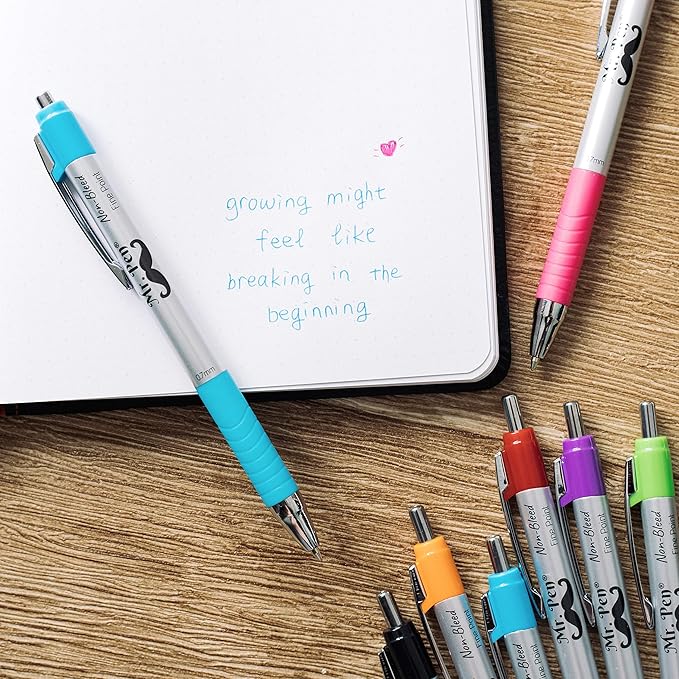 growing might
feel like
breaking in the
beginning
Non-Bleed
Fine Point
Mr. Pen®
0.7mm
7mm
Non-Bleed
Fine Point
Mr. Pen®
Non-Bleed
Fine Point
Mr. Pen®
Non-Bleed
Fine Point
Mr. Pen
Non-Bleed
Fine Point
Non-Bleed
Fine Point